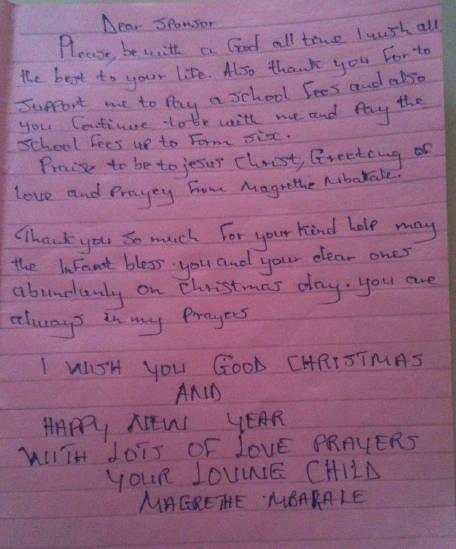 Dear Sponsor
Please, be with a God all time I wish all
the best to your life. Also thank you for to
Support me to Pay a School Fees and also
you Continue to be with me and Pay the
School fees up to Form six.
Praise to be to jesus Christ, Greeting of
love and Prayey From Magrethe Mbakale.
Thank you so much For your Kind help may
the Infant bless you and your dear ones
abundanly on Christmas day. you are
always in my Prayers
I WISH YOU GOOD CHRISTMAS
AND
HAPPY NEW YEAR
WITH LOTS OF LOVE PRAYERS
YOUR LOVING CHILD
MAGRETHE MBAKALE